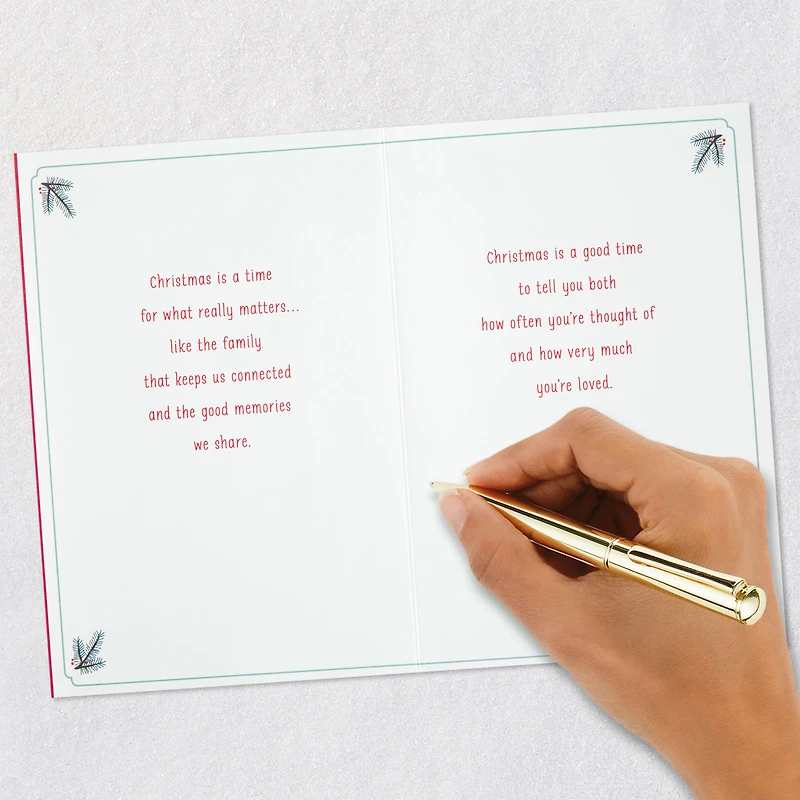 Christmas is a time
for what really matters...
like the family
that keeps us connected
and the good memories
we share.
Christmas is a good time
to tell you both
how often you're thought of
and how very much
you're loved.